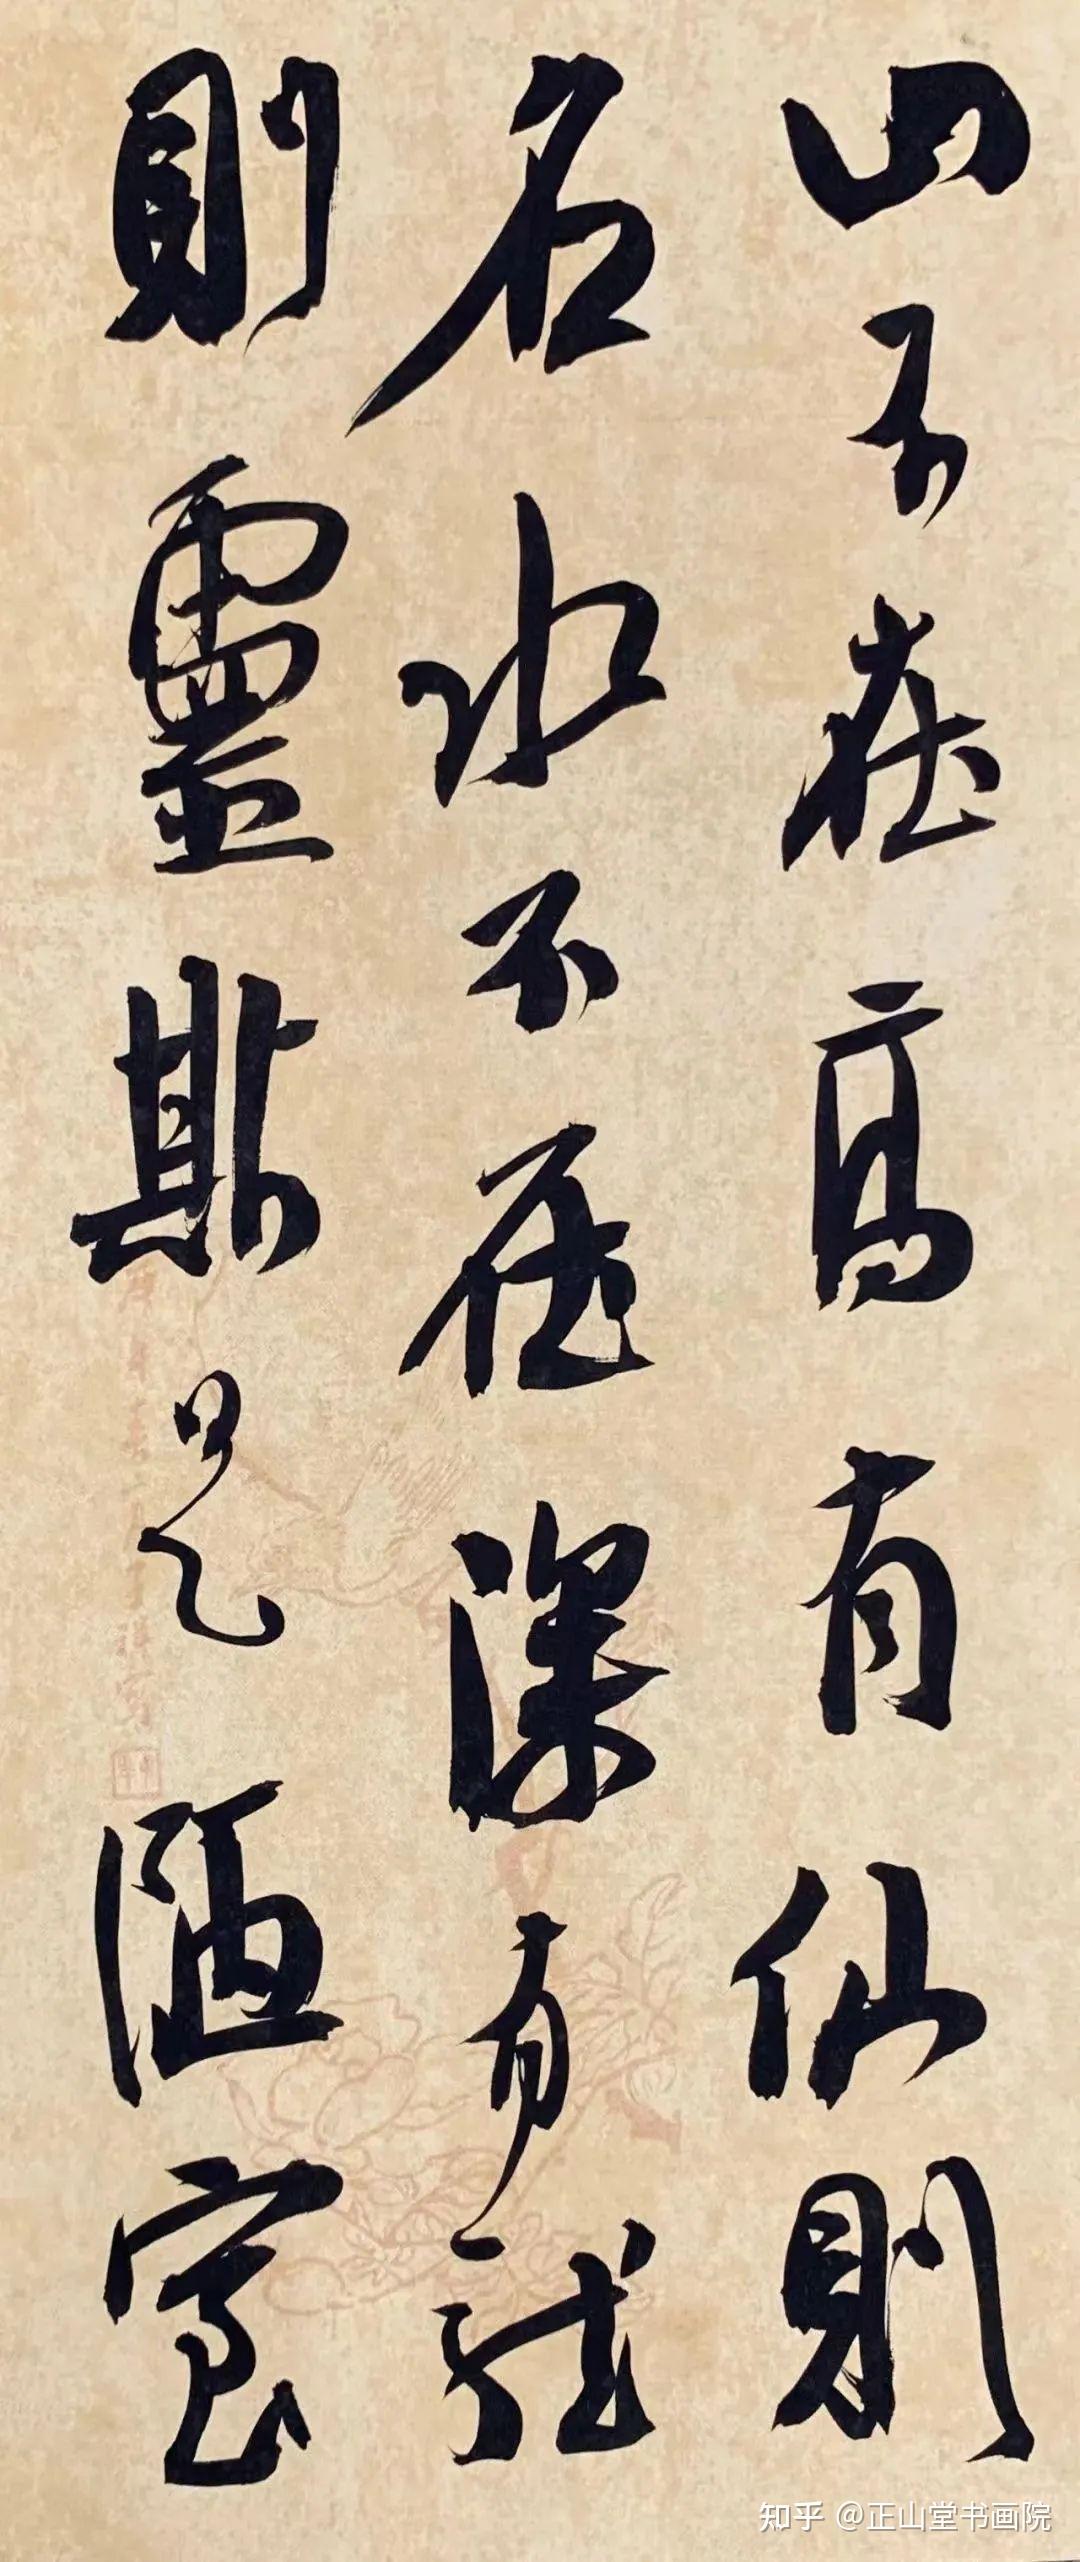 山不在高有仙則
名水不在深有龍
則靈斯是陋室
知乎 @正山堂书画院